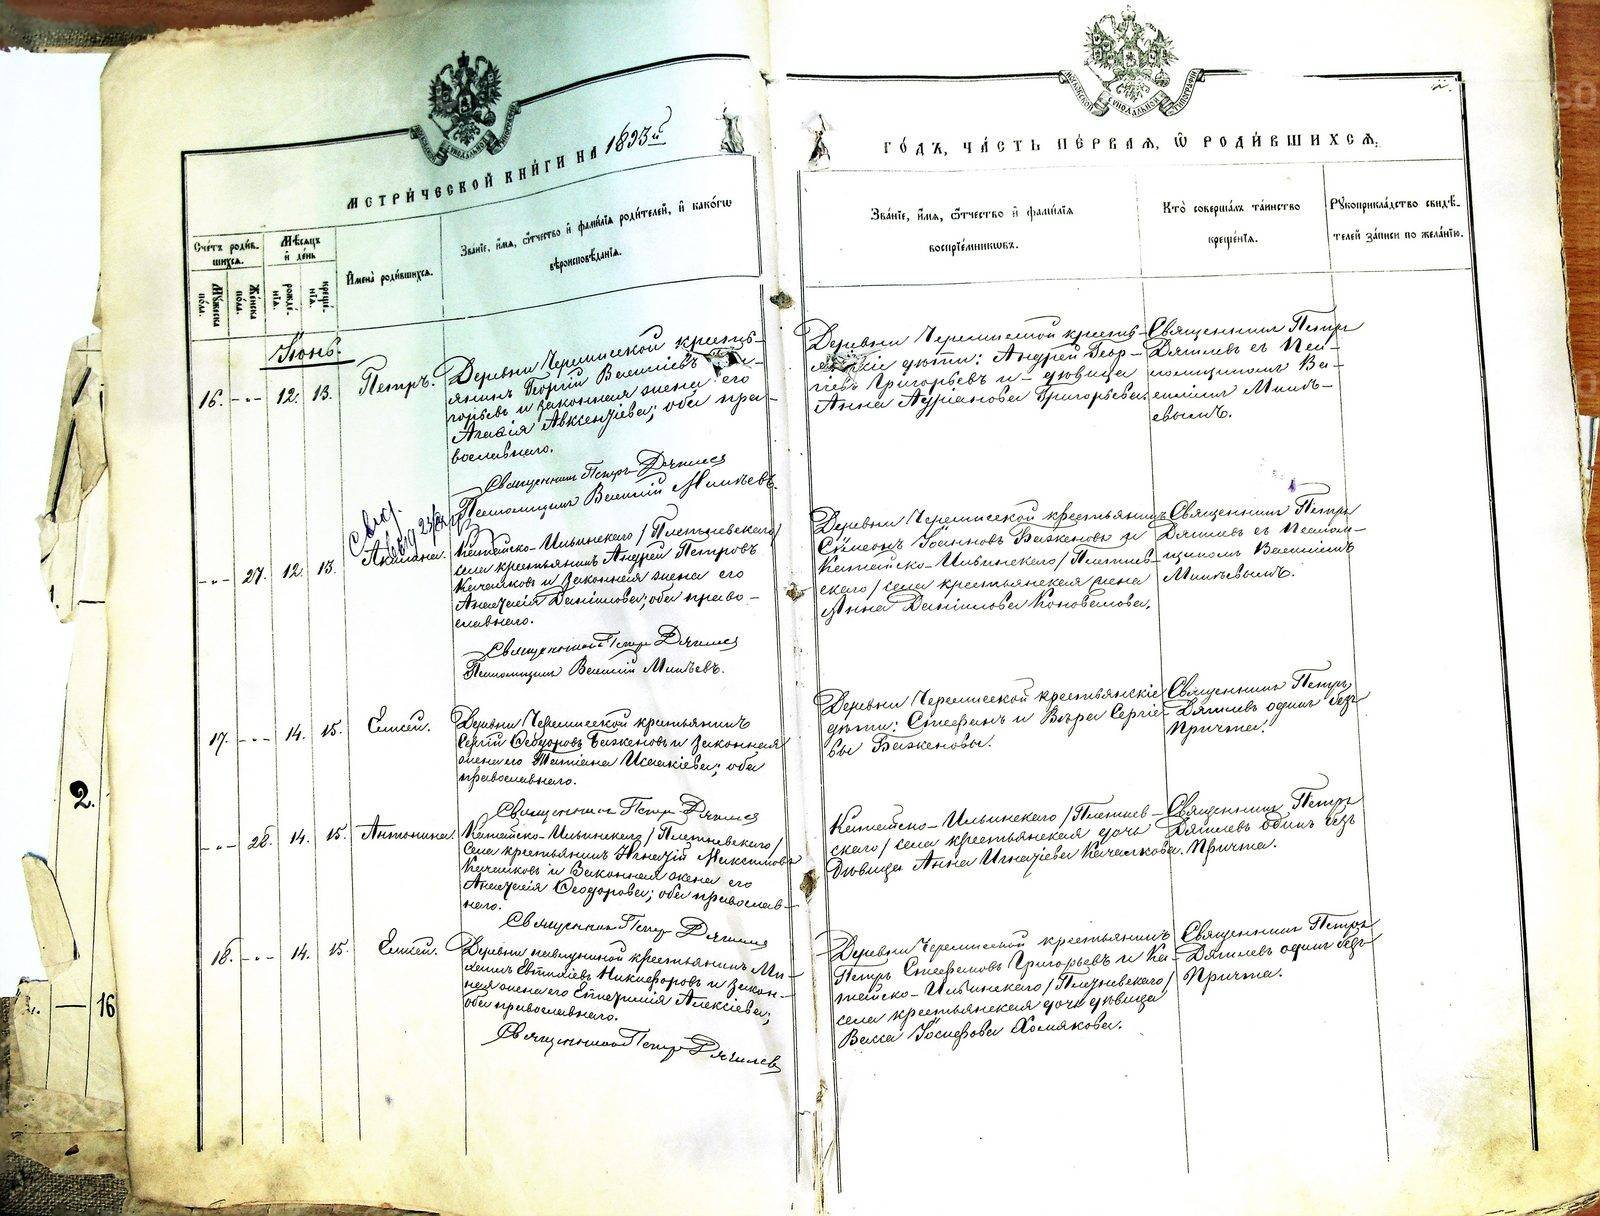 МЕТРИ́ЧЕСКОЙ КНИ́ГИ НА 1893й
ГО́ДЪ, ЧА́СТЬ ПЕ́РВАЯ, Ѡ҆ РОДИ́ВШИХСЯ.
МОСКОВСКОЙ СѴНОДАЛЬНОЙ ТИПОГРАФІИ
Сче́тъ роди́в-
шихся.
Мѣ́сяцъ
и҆ де́нь
Му́жеска
по́ла.
Же́нска
по́ла.
рожде́-
нїя.
креще́-
нїя.
И҆мена̀ роди́вшихся.
Зва́нїе, и҆́мя, ѻ҆́тчество и҆ фами́лїя роди́телей, и҆ како́гѡ
вѣроисповѣ́данїя.
Зва́нїе, и҆́мя, ѻ҆́тчество и҆ фами́лїя
воспрїе́мникѡвъ.
Кто̀ соверша́лъ та́инство
креще́нїя.
Рꙋкоприкла́дство свидѣ́-
телей за́писи по жела́нїю.
Іюнь.
16. -„- 12. 13. Петръ.
Деревни Черемисской кресть-
янинъ Георгій Василіевъ Гри-
горьевъ и законная жена его
Агаѳія Авксентіева; оба пра-
вославнаго.
Священникъ Петръ Дягилевъ
Псаломщикъ Василій Михѣевъ.
Деревни Черемисской кресть-
янскіе дѣти: Андрей Геор-
гіевъ Григорьевъ и дѣвица
Анна Адріанова Григорьева.
Священникъ Петръ
Дягилевъ съ Пса-
ломщикомъ Ва-
силіемъ Михѣ-
евымъ.
-„- 27. 12. 13. Акилина.
Катайско-Ильинскаго /Плетневскаго/
села крестьянинъ Андрей Петровъ
Качалковъ и законная жена его
Анастасія Даніилова; оба право-
славнаго.
Священникъ Петръ Дягилевъ
Псаломщикъ Василій Михѣевъ.
Деревни Черемисской крестьянинъ
Сѵмеонъ Іоанновъ Баженовъ и
Катайско-Ильинскаго /Плетнев-
скаго/ села крестьянская жена
Анна Даніилова Коновалова.
Священникъ Петръ
Дягилевъ съ Псалом-
щикомъ Василіемъ
Михѣевымъ.
17. -„- 14. 15. Елисей.
Деревни Черемисской крестьянинъ
Сергій Ѳеодоровъ Баженовъ и законная
жена его Татіана Исаакіева; оба
православнаго.
Священникъ Петръ Дягилевъ
Деревни Черемисской крестьянскіе
дѣти: Стефанъ и Вѣра Сергіе-
вы Баженовы.
Священникъ Петръ
Дягилевъ одинъ безъ
Причта.
-„- 28. 14. 15. Антонина.
Катайско-Ильинскаго /Плетневскаго/
села крестьянинъ Игнатій Максимовъ
Качалковъ и законная жена его
Анастасія Ѳеодорова; оба православ-
наго.
Священникъ Петръ Дягилевъ
Катайско-Ильинскаго /Плетнев-
скаго/ села крестьянская дочь
дѣвица Анна Игнатіева Качалкова.
Священникъ Петръ
Дягилевъ одинъ безъ
Причта.
18. -„- 14. 15. Елисей.
Деревни крестьянинъ Ми-
хаилъ Никифоровъ и закон-
ная жена его Алексіева;
оба православнаго.
Священникъ Петръ Дягилевъ
Деревни Черемисской крестьянинъ
Петръ Стефановъ Григорьевъ и Ка-
тайско-Ильинскаго /Плетневскаго/
села крестьянская дочь дѣвица
Васса Іосифова Хомякова.
Священникъ Петръ
Дягилевъ одинъ безъ
Причта.
2.
16